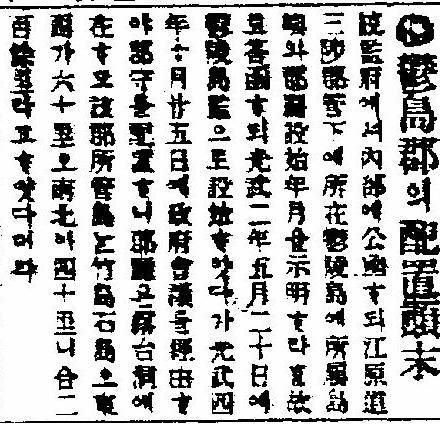 ●鬱島郡의 配置顚末
統監府에셔內部에公函ᄒᆞ되江原道
三陟郡管下에所在鬱陵島에所屬島
嶼와郡廳設始年月을示明ᄒᆞ라故
로答函ᄒᆞ되光武二年五月二十日에
鬱陵島監으로設始ᄒᆞ얏다가光武四
年十月廿五日에政府會議를經由ᄒᆞ
야郡守를配置ᄒᆞ니郡廳은霞台洞에
在ᄒᆞ고該郡所管島ᄂᆞᆫ竹島石島오東
西가六十里오南北이四十里니合二
百餘里라고ᄒᆞ얏다더라